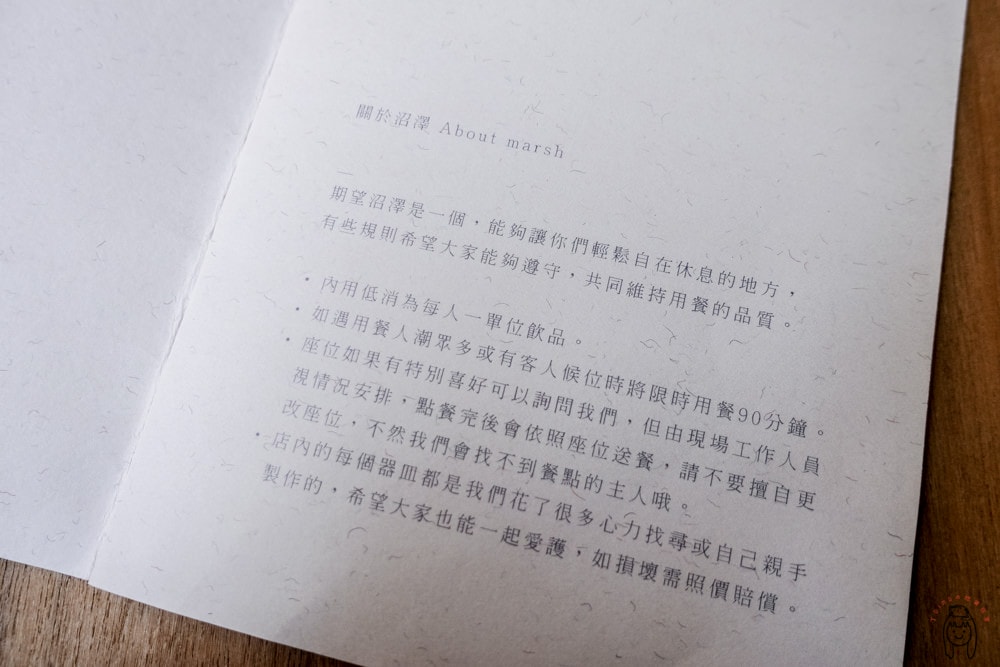 關於沼澤 About marsh
期望沼澤是一個，能夠讓你們輕鬆自在休息的地方，
有些規則希望大家能夠遵守，共同維持用餐的品質。
・內用低消為每人一單位飲品。
・如遇用餐人潮眾多或有客人候位時將限時用餐90分鐘。
・座位如果有特別喜好可以詢問我們，但由現場工作人員
視情況安排，點餐完後會依照座位送餐，請不要擅自更
改座位，不然我們會找不到餐點的主人哦。
・店內的每個器皿都是我們花了很多心力找尋或自己親手
製作的，希望大家也能一起愛護，如損壞需照價賠償。